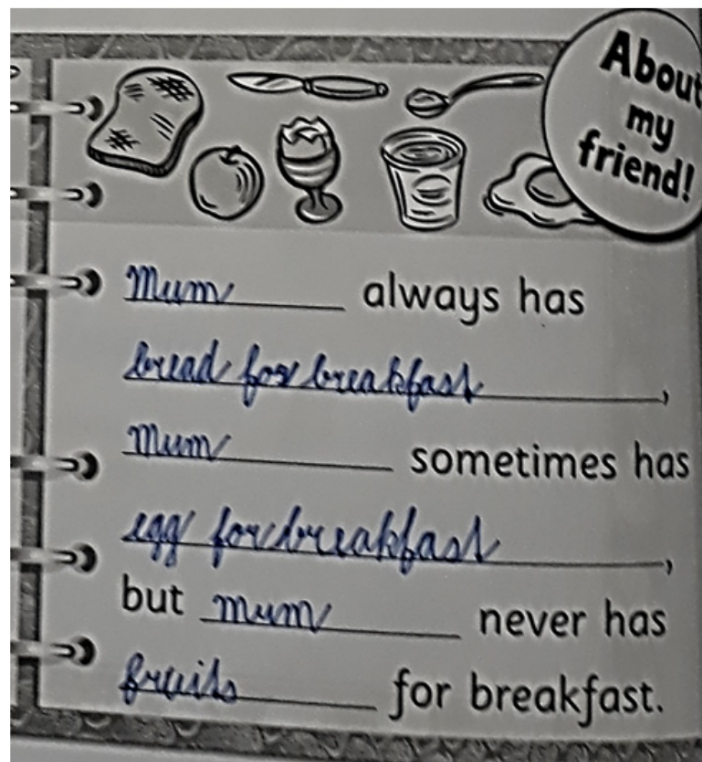 About
my
friend!
Mum always has
bread for breakfast,
Mum sometimes has
egg for breakfast,
but mum never has
fruits for breakfast.